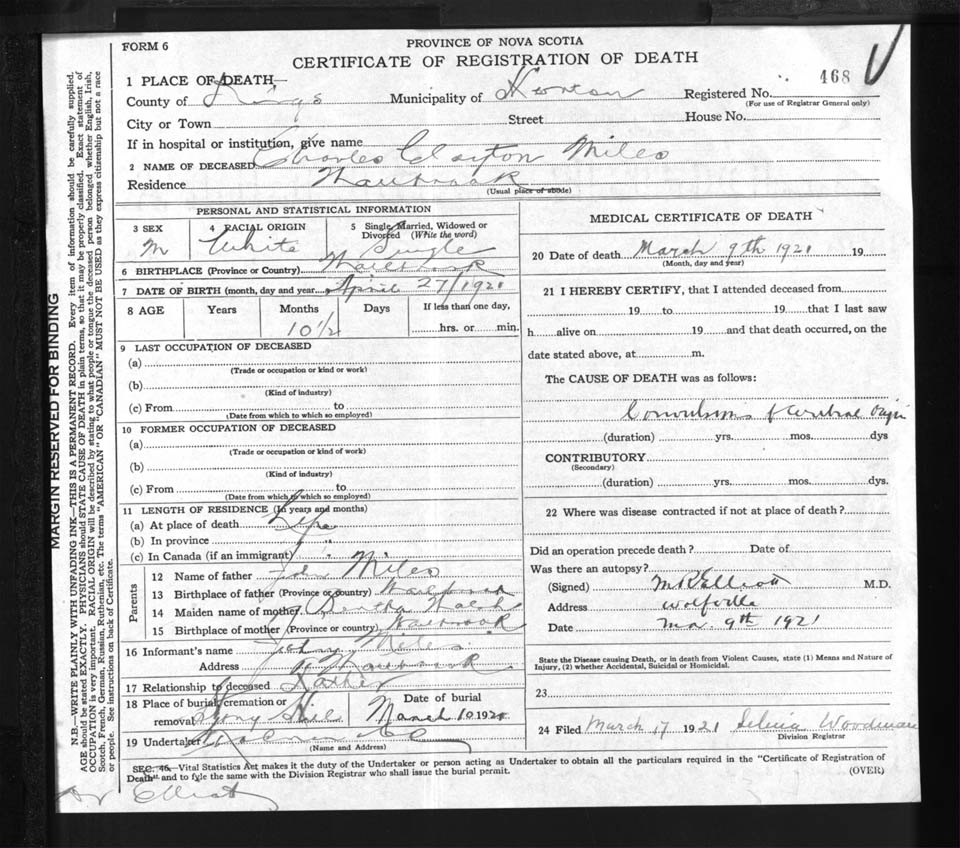 FORM 6
PROVINCE OF NOVA SCOTIA
CERTIFICATE OF REGISTRATION OF DEATH
468
1 PLACE OF DEATH—
County of Kings Municipality of Horton Registered No.
(For use of Registrar General only)
City or Town Street House No.
If in hospital or institution, give name
2 NAME OF DECEASED Charles Clayton Miles
Residence
(Usual place of abode)
PERSONAL AND STATISTICAL INFORMATION
3 SEX 4 RACIAL ORIGIN 5 Single, Married, Widowed or Divorced (Write the word)
M White Single
6 BIRTHPLACE (Province or Country)
7 DATE OF BIRTH (month, day and year) April 27/1921
8 AGE Years Months Days If less than one day,
10½ hrs. or min.
9 LAST OCCUPATION OF DECEASED
(a)
(Trade or occupation or kind or work)
(b)
(Kind of industry)
(c) From to
(Date from which to which so employed)
10 FORMER OCCUPATION OF DECEASED
(a)
(Trade or occupation or kind of work)
(b)
(Kind of industry)
(c) From to
(Date from which to which so employed)
11 LENGTH OF RESIDENCE (In years and months)
(a) At place of death Life
(b) In province "
(c) In Canada (if an immigrant) "
Parents
12 Name of father John Miles
13 Birthplace of father (Province or country)
14 Maiden name of mother Bertha Walsh
15 Birthplace of mother (Province or country)
16 Informant's name Johny Miles
Address
17 Relationship to deceased Father
18 Place of burial, cremation or removal Stony Hill Date of burial March 10 1921
19 Undertaker
(Name and Address)
MEDICAL CERTIFICATE OF DEATH
20 Date of death March 9th 1921 19
(Month, day and year)
21 I HEREBY CERTIFY, that I attended deceased from
19 to 19 that I last saw
h alive on 19 and that death occurred, on the
date stated above, at m.
The CAUSE OF DEATH was as follows:
Convulsions of Cerebral Origin
(duration) yrs. mos. dys
CONTRIBUTORY
(Secondary)
(duration) yrs. mos. dys.
22 Where was disease contracted if not at place of death?
Did an operation precede death? Date of
Was there an autopsy?
(Signed) M R Elliott M.D.
Address Wolfville
Date Mar. 9th 1921
State the Disease causing Death, or in death from Violent Causes, state (1) Means and Nature of
Injury, (2) whether Accidental, Suicidal or Homicidal.
23
24 Filed March 17 1921 Selina Woodman
Division Registrar
SEC. 46—Vital Statistics Act makes it the duty of the Undertaker or person acting as Undertaker to obtain all the particulars required in the "Certificate of Registration of
Death" and to file the same with the Division Registrar who shall issue the burial permit. (OVER)
Dr Elliott
MARGIN RESERVED FOR BINDING
N.B.—WRITE PLAINLY WITH UNFADING INK—THIS IS A PERMANENT RECORD. Every item of information should be carefully supplied.
AGE should be stated EXACTLY. PHYSICIANS should STATE CAUSE OF DEATH in plain terms, so that it may be properly classified. Exact statement of
OCCUPATION is very important. RACIAL ORIGIN will be described by stating to what people or tongue the deceased person belonged whether English, Irish,
Scotch, French, German, Russian, Ruthenian, etc. The terms "AMERICAN" OR "CANADIAN" MUST NOT BE USED as they express citizenship but not a race
or people. See instructions on back of Certificate.